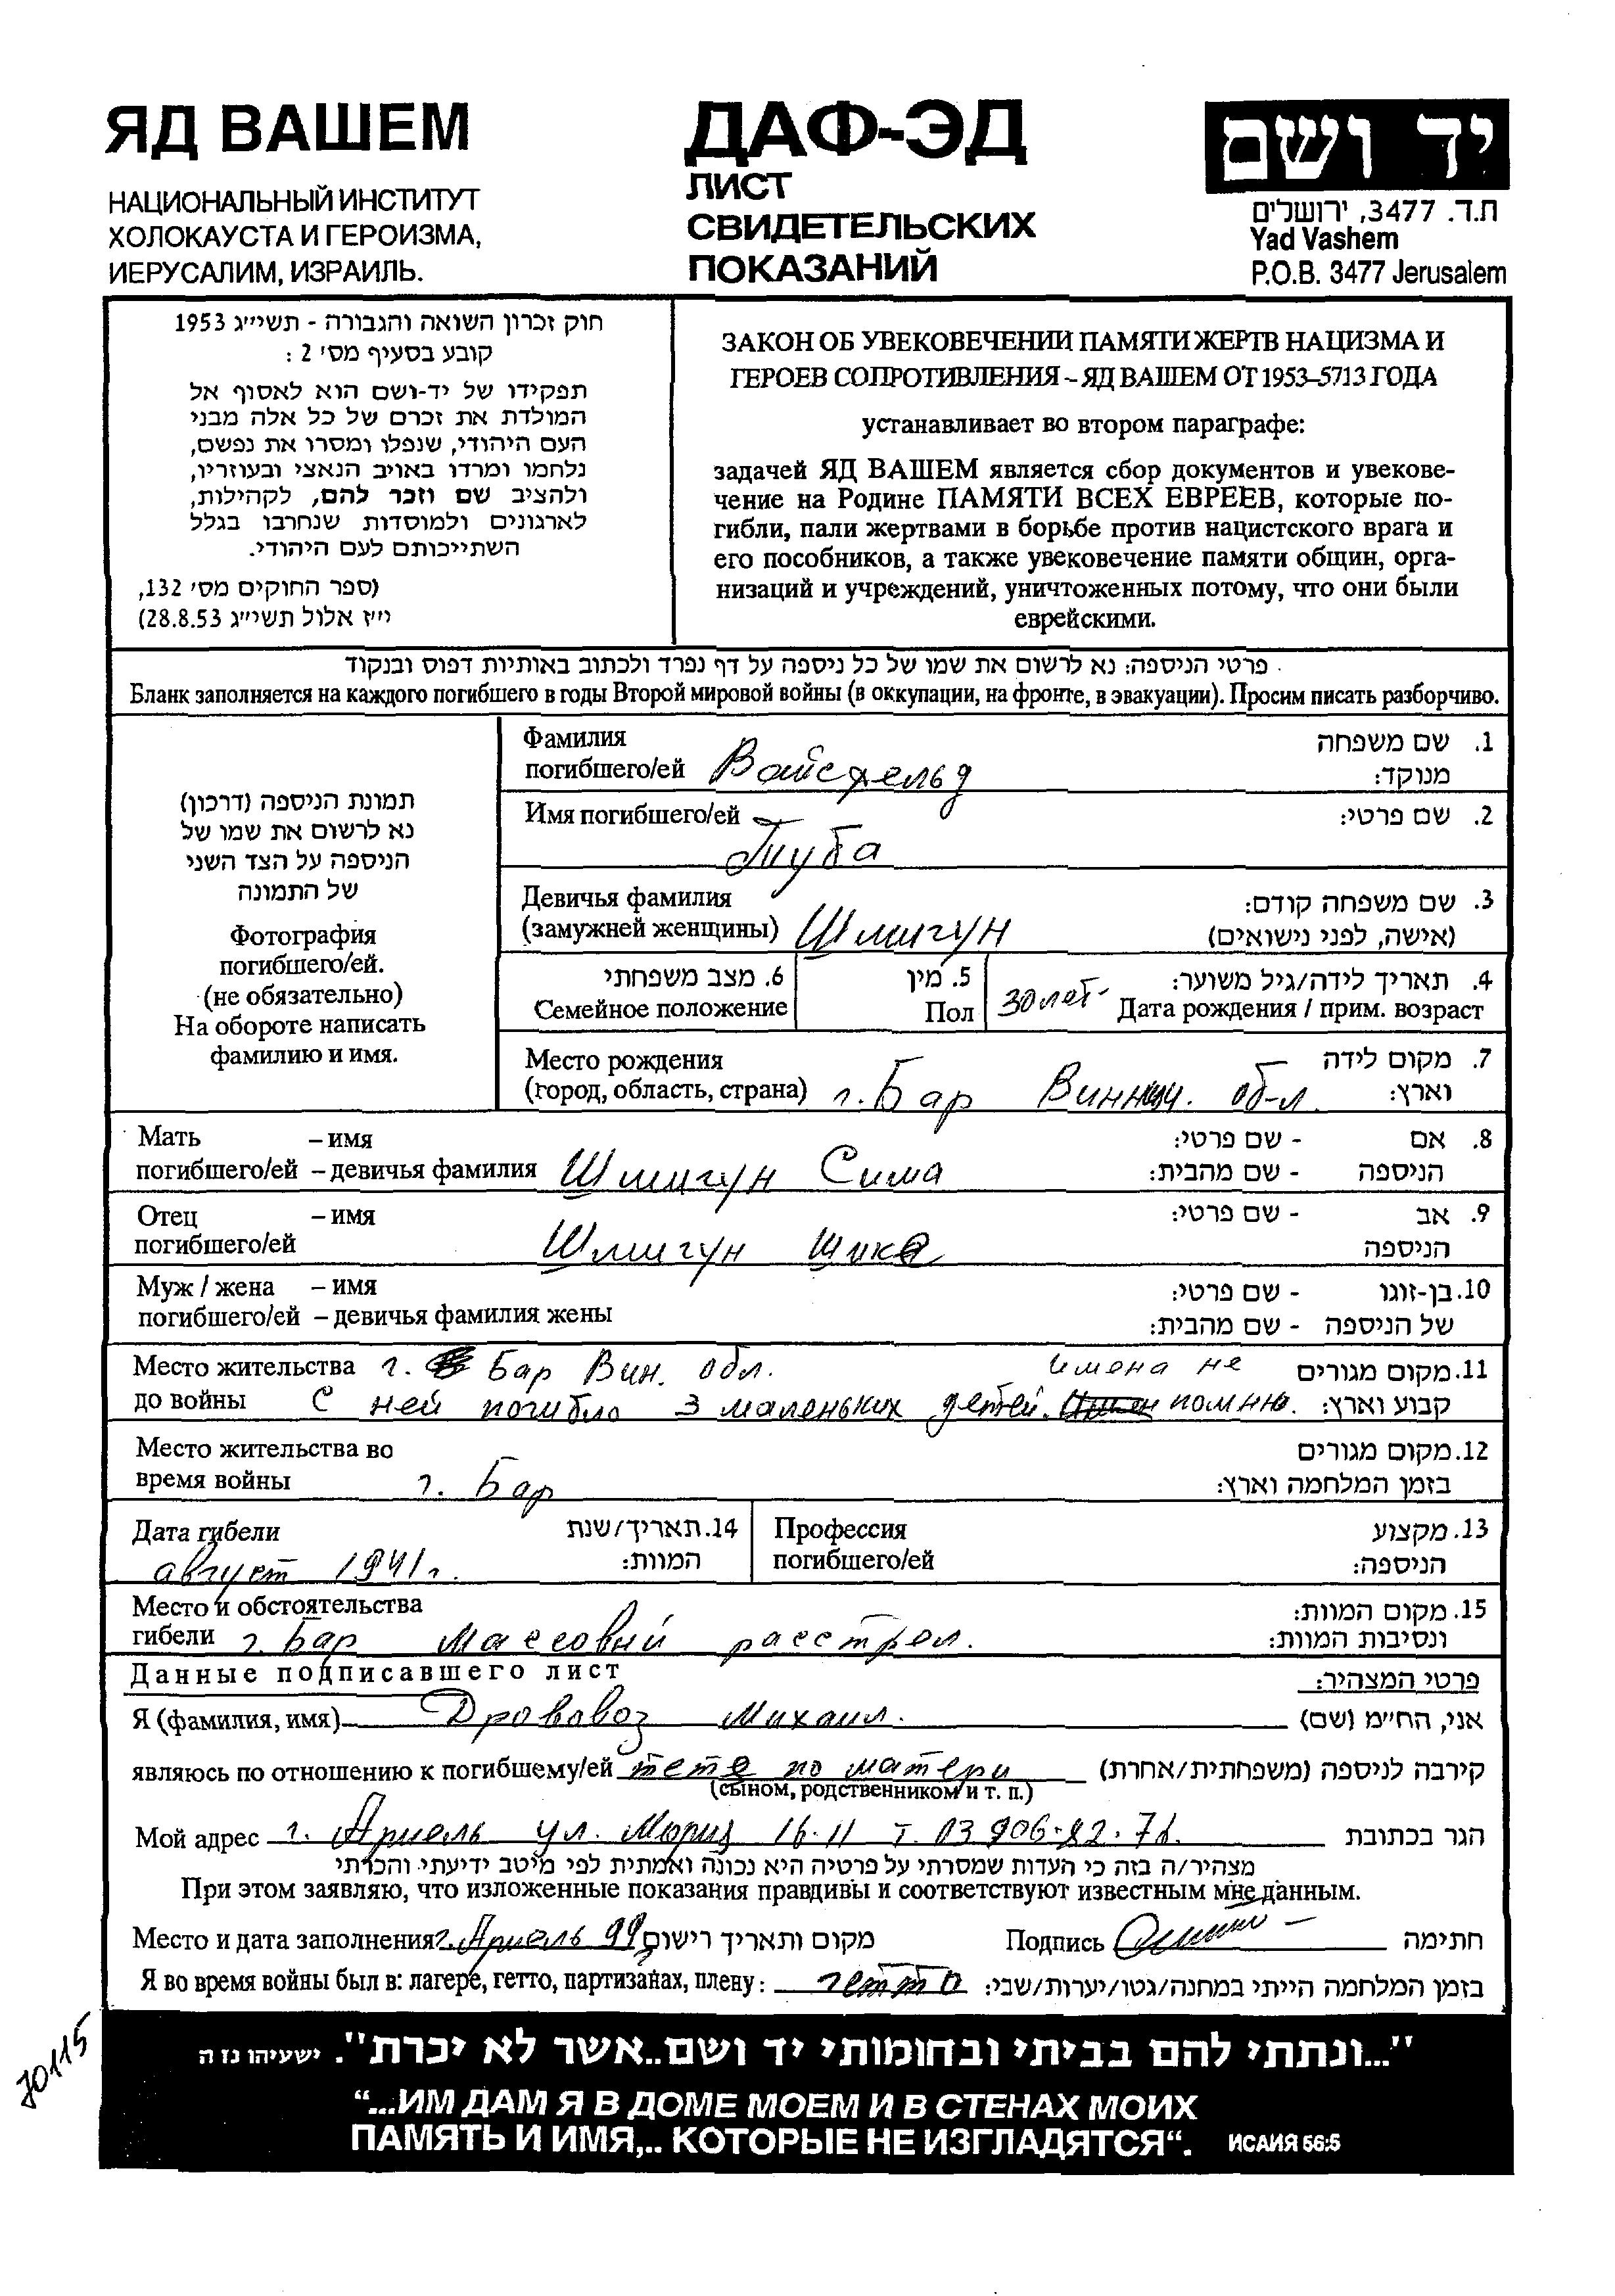 ЯД ВАШЕМ
НАЦИОНАЛЬНЫЙ ИНСТИТУТ
ХОЛОКАУСТА И ГЕРОИЗМА,
ИЕРУСАЛИМ, ИЗРАИЛЬ.
ДАФ-ЭД
ЛИСТ
СВИДЕТЕЛЬСКИХ
ПОКАЗАНИЙ
יד ושם
ת.ד. 3477, ירושלים
Yad Vashem
P.O.B. 3477 Jerusalem
חוק זכרון השואה והגבורה - תשי״ג 1953
קובע בסעיף מס׳ 2 :
תפקידו של יד-ושם הוא לאסוף אל
המולדת את זכרם של כל אלה מבני
העם היהודי, שנפלו ומסרו את נפשם,
נלחמו ומרדו באויב הנאצי ובעוזריו,
ולהציב שם וזכר להם, לקהילות,
לארגונים ולמוסדות שנחרבו בגלל
השתייכותם לעם היהודי.
(ספר החוקים מס׳ 132,
י״ז אלול תשי״ג 28.8.53)
ЗАКОН ОБ УВЕКОВЕЧЕНИИ ПАМЯТИ ЖЕРТВ НАЦИЗМА И
ГЕРОЕВ СОПРОТИВЛЕНИЯ – ЯД ВАШЕМ ОТ 1953–5713 ГОДА
устанавливает во втором параграфе:
задачей ЯД ВАШЕМ является сбор документов и увекове-
чение на Родине ПАМЯТИ ВСЕХ ЕВРЕЕВ, которые по-
гибли, пали жертвами в борьбе против нацистского врага и
его пособников, а также увековечение памяти общин, орга-
низаций и учреждений, уничтоженных потому, что они были
еврейскими.
פרטי הניספה: נא לרשום את שמו של כל ניספה על דף נפרד ולכתוב באותיות דפוס ובנקוד
Бланк заполняется на каждого погибшего в годы Второй мировой войны (в оккупации, на фронте, в эвакуации). Просим писать разборчиво.
תמונת הניספה (דרכון)
נא לרשום את שמו של
הניספה על הצד השני
של התמונה
Фотография
погибшего/ей.
(не обязательно)
На обороте написать
фамилию и имя.
Фамилия 1. שם משפחה
погибшего/ей Вайсфельд מנוקד:
Имя погибшего/ей 2. שם פרטי:
Туба
Девичья фамилия 3. שם משפחה קודם:
(замужней женщины) Шмигун (אישה, לפני נישואים)
6. מצב משפחתי 5. מין 4. תאריך לידה/גיל משוער:
Семейное положение Пол 30 лет Дата рождения / прим. возраст
Место рождения 7. מקום לידה
(город, область, страна) г. Бар Винниц. обл. וארץ:
Мать – имя 8. אם - שם פרטי:
погибшего/ей – девичья фамилия Шмигун Сима הניספה - שם מהבית:
Отец – имя 9. אב - שם פרטי:
погибшего/ей Шмигун Шика הניספה
Муж / жена – имя 10. בן-זוגו - שם פרטי:
погибшего/ей – девичья фамилия жены של הניספה - שם מהבית:
Место жительства г. Бар Вин. обл. имена не 11. מקום מגורים
до войны С ней погибло 3 маленьких детей. помню. קבוע וארץ:
Место жительства во 12. מקום מגורים
время войны г. Бар בזמן המלחמה וארץ:
Дата гибели 14. תאריך/שנת Профессия 13. מקצוע
август 1941г. המוות: погибшего/ей הניספה:
Место и обстоятельства 15. מקום המוות:
гибели г. Бар массовый расстрел. ונסיבות המוות:
Данные подписавшего лист פרטי המצהיר:
Я (фамилия, имя) Дрововоз Михаил. אני, הח״מ (שם)
являюсь по отношению к погибшему/ей тетя по матери קירבה לניספה (משפחתית/אחרת)
(сыном, родственником и т. п.)
Мой адрес г. Ариель ул. Мория 16-11 т. 03 906-82-76. הגר בכתובת
מצהיר/ה בזה כי העדות שמסרתי על פרטיה היא נכונה ואמתית לפי מיטב ידיעתי והכרתי
При этом заявляю, что изложенные показания правдивы и соответствуют известным мне данным.
Место и дата заполнения г. Ариель 99г מקום ותאריך רישום Подпись חתימה
Я во время войны был в: лагере, гетто, партизанах, плену: гетто בזמן המלחמה הייתי במחנה/גטו/יערות/שבי:
70115
"...ונתתי להם בביתי ובחומותי יד ושם..אשר לא יכרת". ישעיהו נו ה
“...ИМ ДАМ Я В ДОМЕ МОЕМ И В СТЕНАХ МОИХ
ПАМЯТЬ И ИМЯ,.. КОТОРЫЕ НЕ ИЗГЛАДЯТСЯ“. ИСАИЯ 56:5